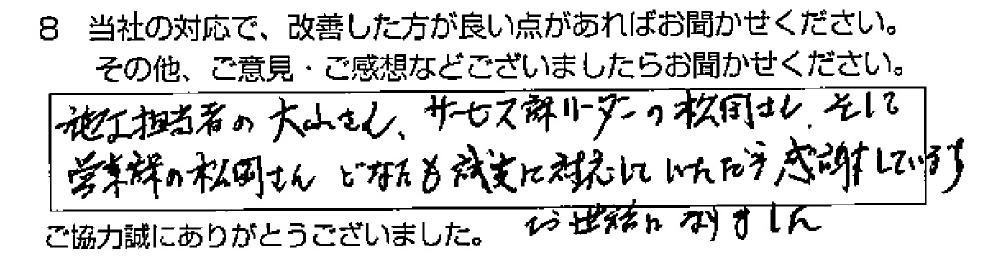 8 当社の対応で、改善した方が良い点があればお聞かせください。
その他、ご意見・ご感想などございましたらお聞かせください。
施工担当者の大山さん、サービス部リーダーの松岡さん、そして
営業部の松岡さん どなたも誠実に対応していただき感謝しています
お世話になりました
ご協力誠にありがとうございました。